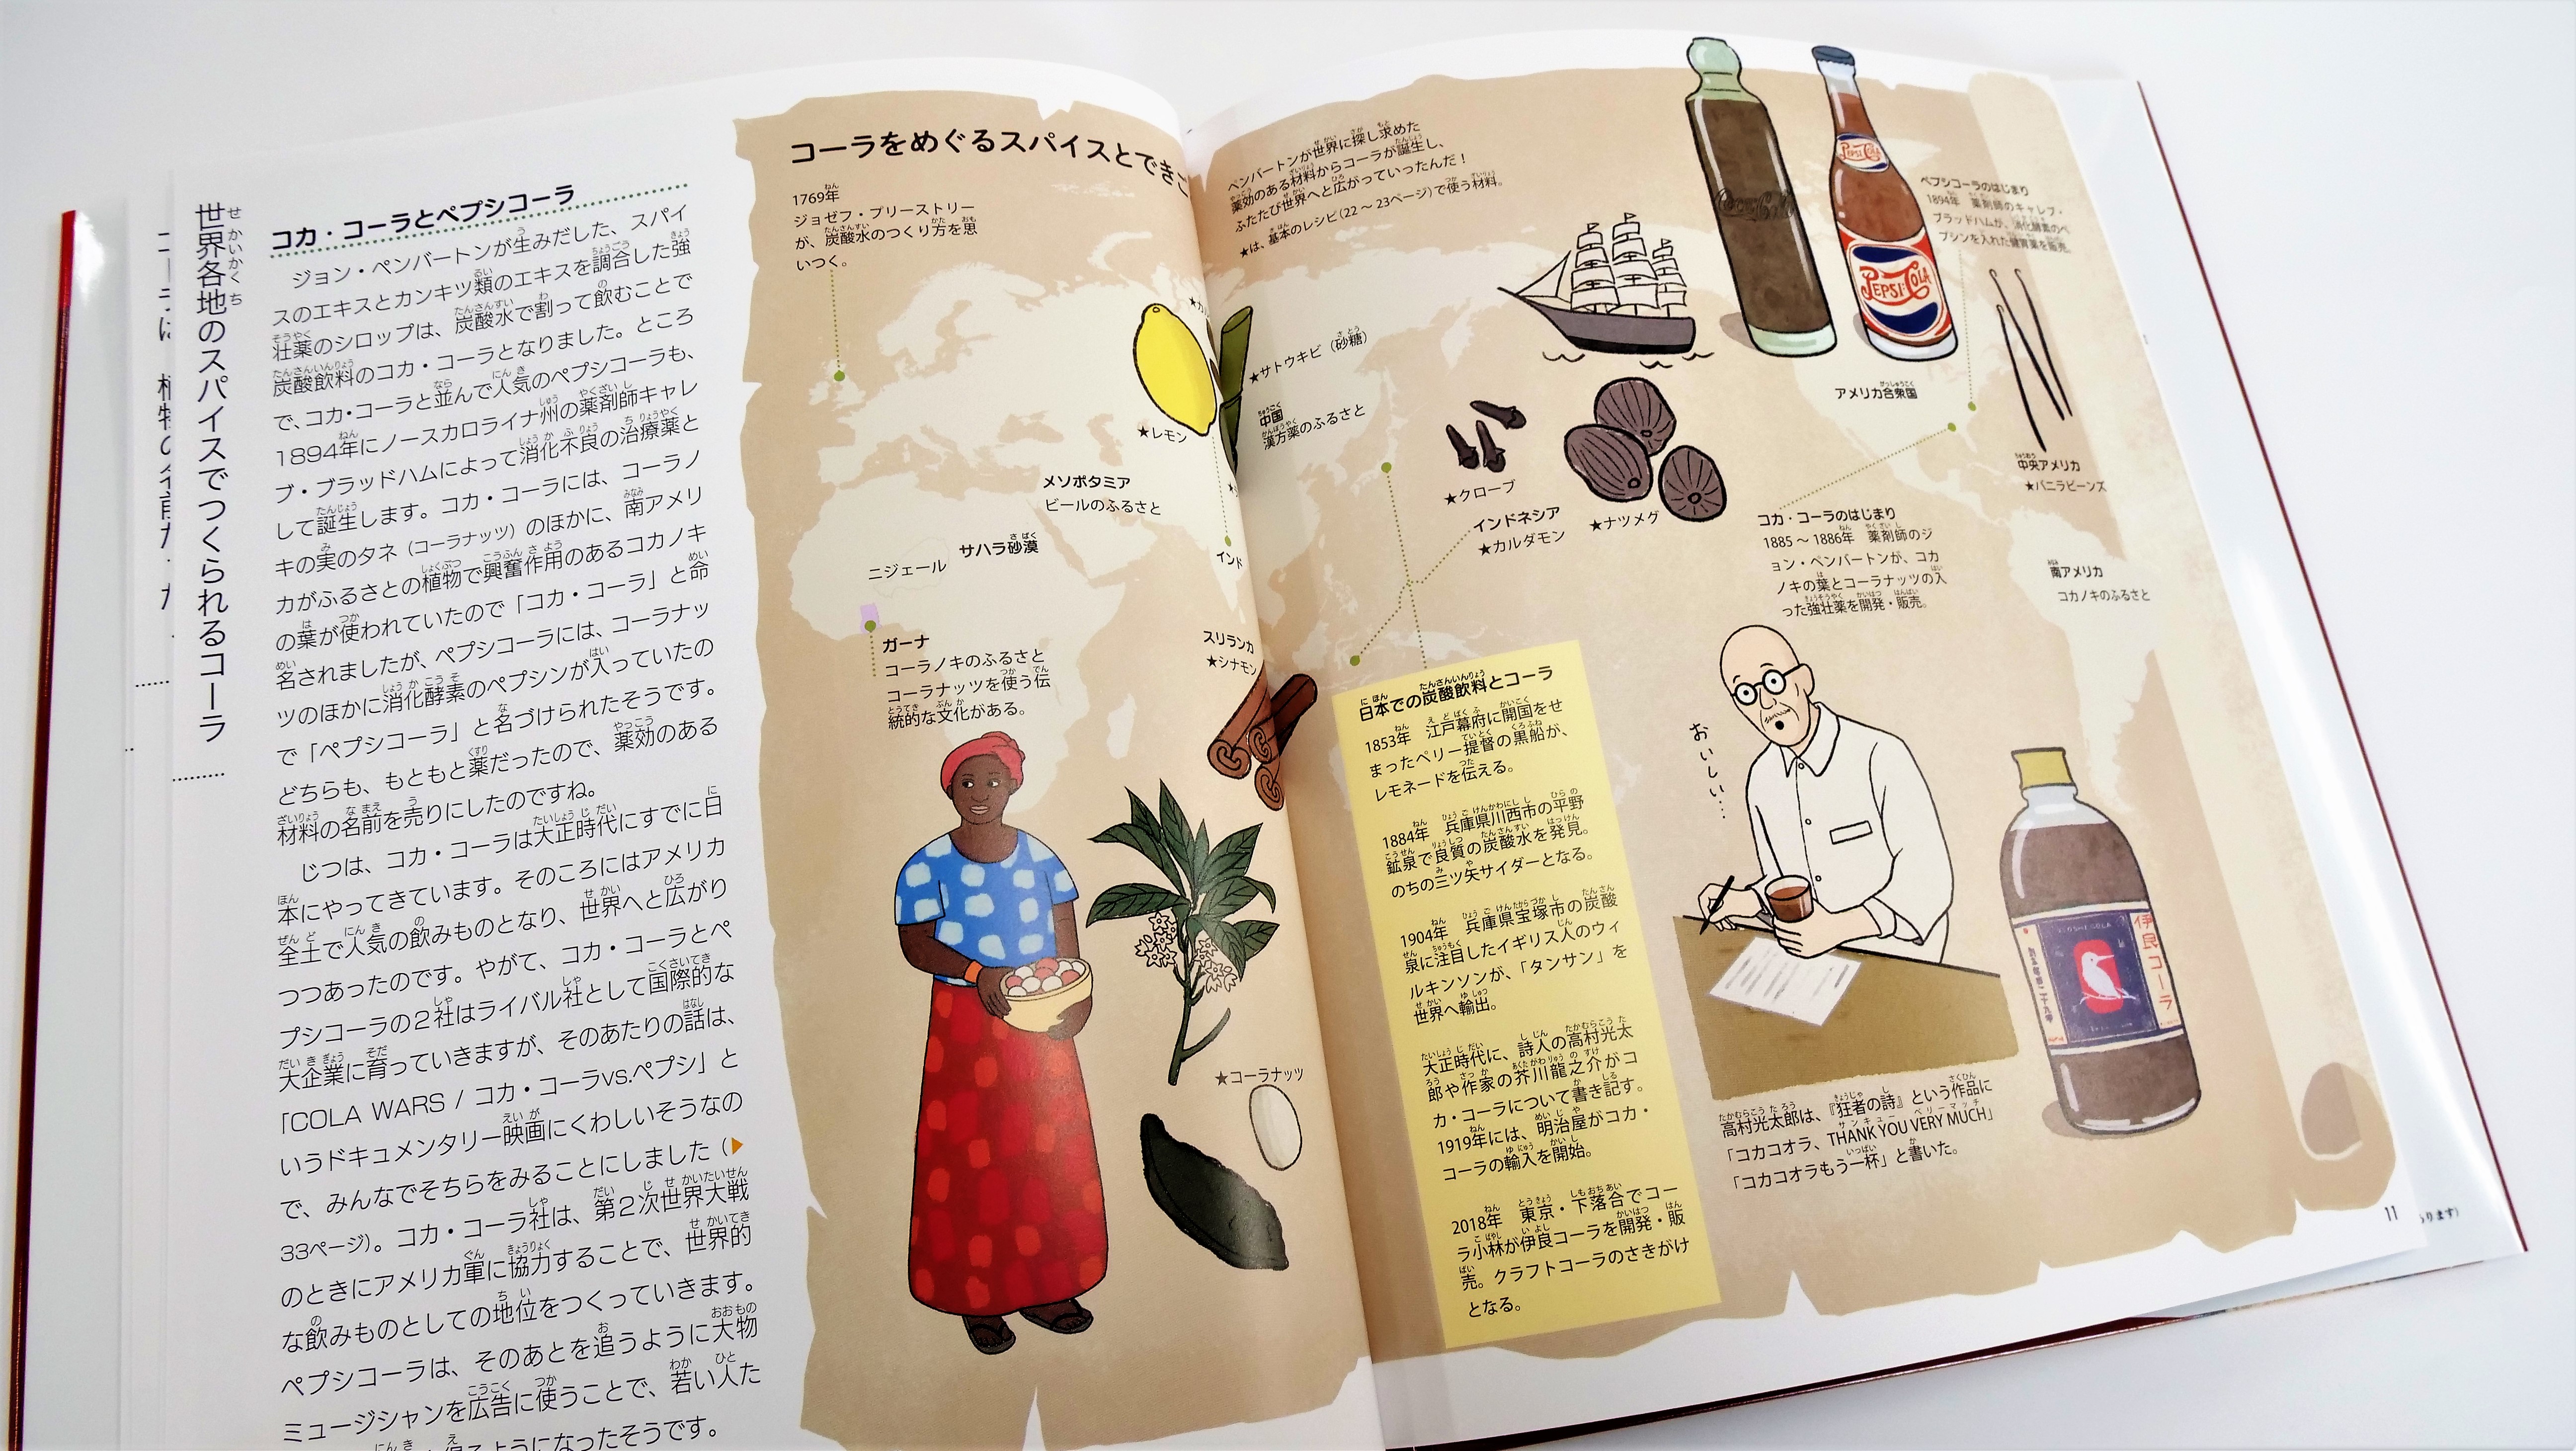 世界各地のスパイスでつくられるコーラ
コカ・コーラとペプシコーラ
ジョン・ペンバートンが生みだした、スパイ
スのエキスとカンキツ類のエキスを調合した強
壮薬のシロップは、炭酸水で割って飲むことで
炭酸飲料のコカ・コーラとなりました。ところ
で、コカ・コーラと並んで人気のペプシコーラも、
1894年にノースカロライナ州の薬剤師キャレ
ブ・ブラッドハムによって消化不良の治療薬と
して誕生します。コカ・コーラには、コーラノ
キの実のタネ（コーラナッツ）のほかに、南アメリ
カがふるさとの植物で興奮作用のあるコカノキ
の葉が使われていたので「コカ・コーラ」と命
名されましたが、ペプシコーラには、コーラナッ
ツのほかに消化酵素のペプシンが入っていたの
で「ペプシコーラ」と名づけられたそうです。
どちらも、もともと薬だったので、薬効のある
材料の名前を売りにしたのですね。
じつは、コカ・コーラは大正時代にすでに日
本にやってきています。そのころにはアメリカ
全土で人気の飲みものとなり、世界へと広がり
つつあったのです。やがて、コカ・コーラとペ
プシコーラの2社はライバル社として国際的な
大企業に育っていきますが、そのあたりの話は、
「COLA WARS / コカ・コーラvs.ペプシ」と
いうドキュメンタリー映画にくわしいそうなの
で、みんなでそちらをみることにしました（▶
33ページ）。コカ・コーラ社は、第2次世界大戦
のときにアメリカ軍に協力することで、世界的
な飲みものとしての地位をつくっていきます。
ペプシコーラは、そのあとを追うように大物
ミュージシャンを広告に使うことで、若い人た
ようになったそうです。
コーラをめぐるスパイスとできご
1769年
ジョゼフ・プリーストリー
が、炭酸水のつくり方を思
いつく。
★レモン
メソポタミア
ビールのふるさと
サハラ砂漠
ニジェール
インド
ガーナ
コーラノキのふるさと
コーラナッツを使う伝
統的な文化がある。
スリランカ
★シナモン
★コーラナッツ
ペンバートンが世界に探し求めた
薬効のある材料からコーラが誕生し、
ふたたび世界へと広がっていったんだ！
★は、基本のレシピ（22～23ページ）で使う材料。
★サトウキビ（砂糖）
中国
漢方薬のふるさと
★クローブ
インドネシア
★カルダモン
★ナツメグ
Coca-Cola
PEPSI-COLA
PEPSI-COLA
ペプシコーラのはじまり
1894年　薬剤師のキャレブ・
ブラッドハムが、消化酵素のペ
プシンを入れた健胃薬を販売。
アメリカ合衆国
中央アメリカ
★バニラビーンズ
コカ・コーラのはじまり
1885～1886年　薬剤師のジ
ョン・ペンバートンが、コカ
ノキの葉とコーラナッツの入
った強壮薬を開発・販売。
南アメリカ
コカノキのふるさと
日本での炭酸飲料とコーラ
1853年　江戸幕府に開国をせ
まったペリー提督の黒船が、
レモネードを伝える。
1884年　兵庫県川西市の平野
鉱泉で良質の炭酸水を発見。
のちの三ツ矢サイダーとなる。
1904年　兵庫県宝塚市の炭酸
泉に注目したイギリス人のウィ
ルキンソンが、「タンサン」を
世界へ輸出。
大正時代に、詩人の高村光太
郎や作家の芥川龍之介がコ
カ・コーラについて書き記す。
1919年には、明治屋がコカ・
コーラの輸入を開始。
2018年　東京・下落合でコー
ラ小林が伊良コーラを開発・販
売。クラフトコーラのさきがけ
となる。
おいしい…
伊良コーラ
高村光太郎は、『狂者の詩』という作品に
「コカコオラ、THANK YOU VERY MUCH」
「コカコオラもう一杯」と書いた。
11
ります）